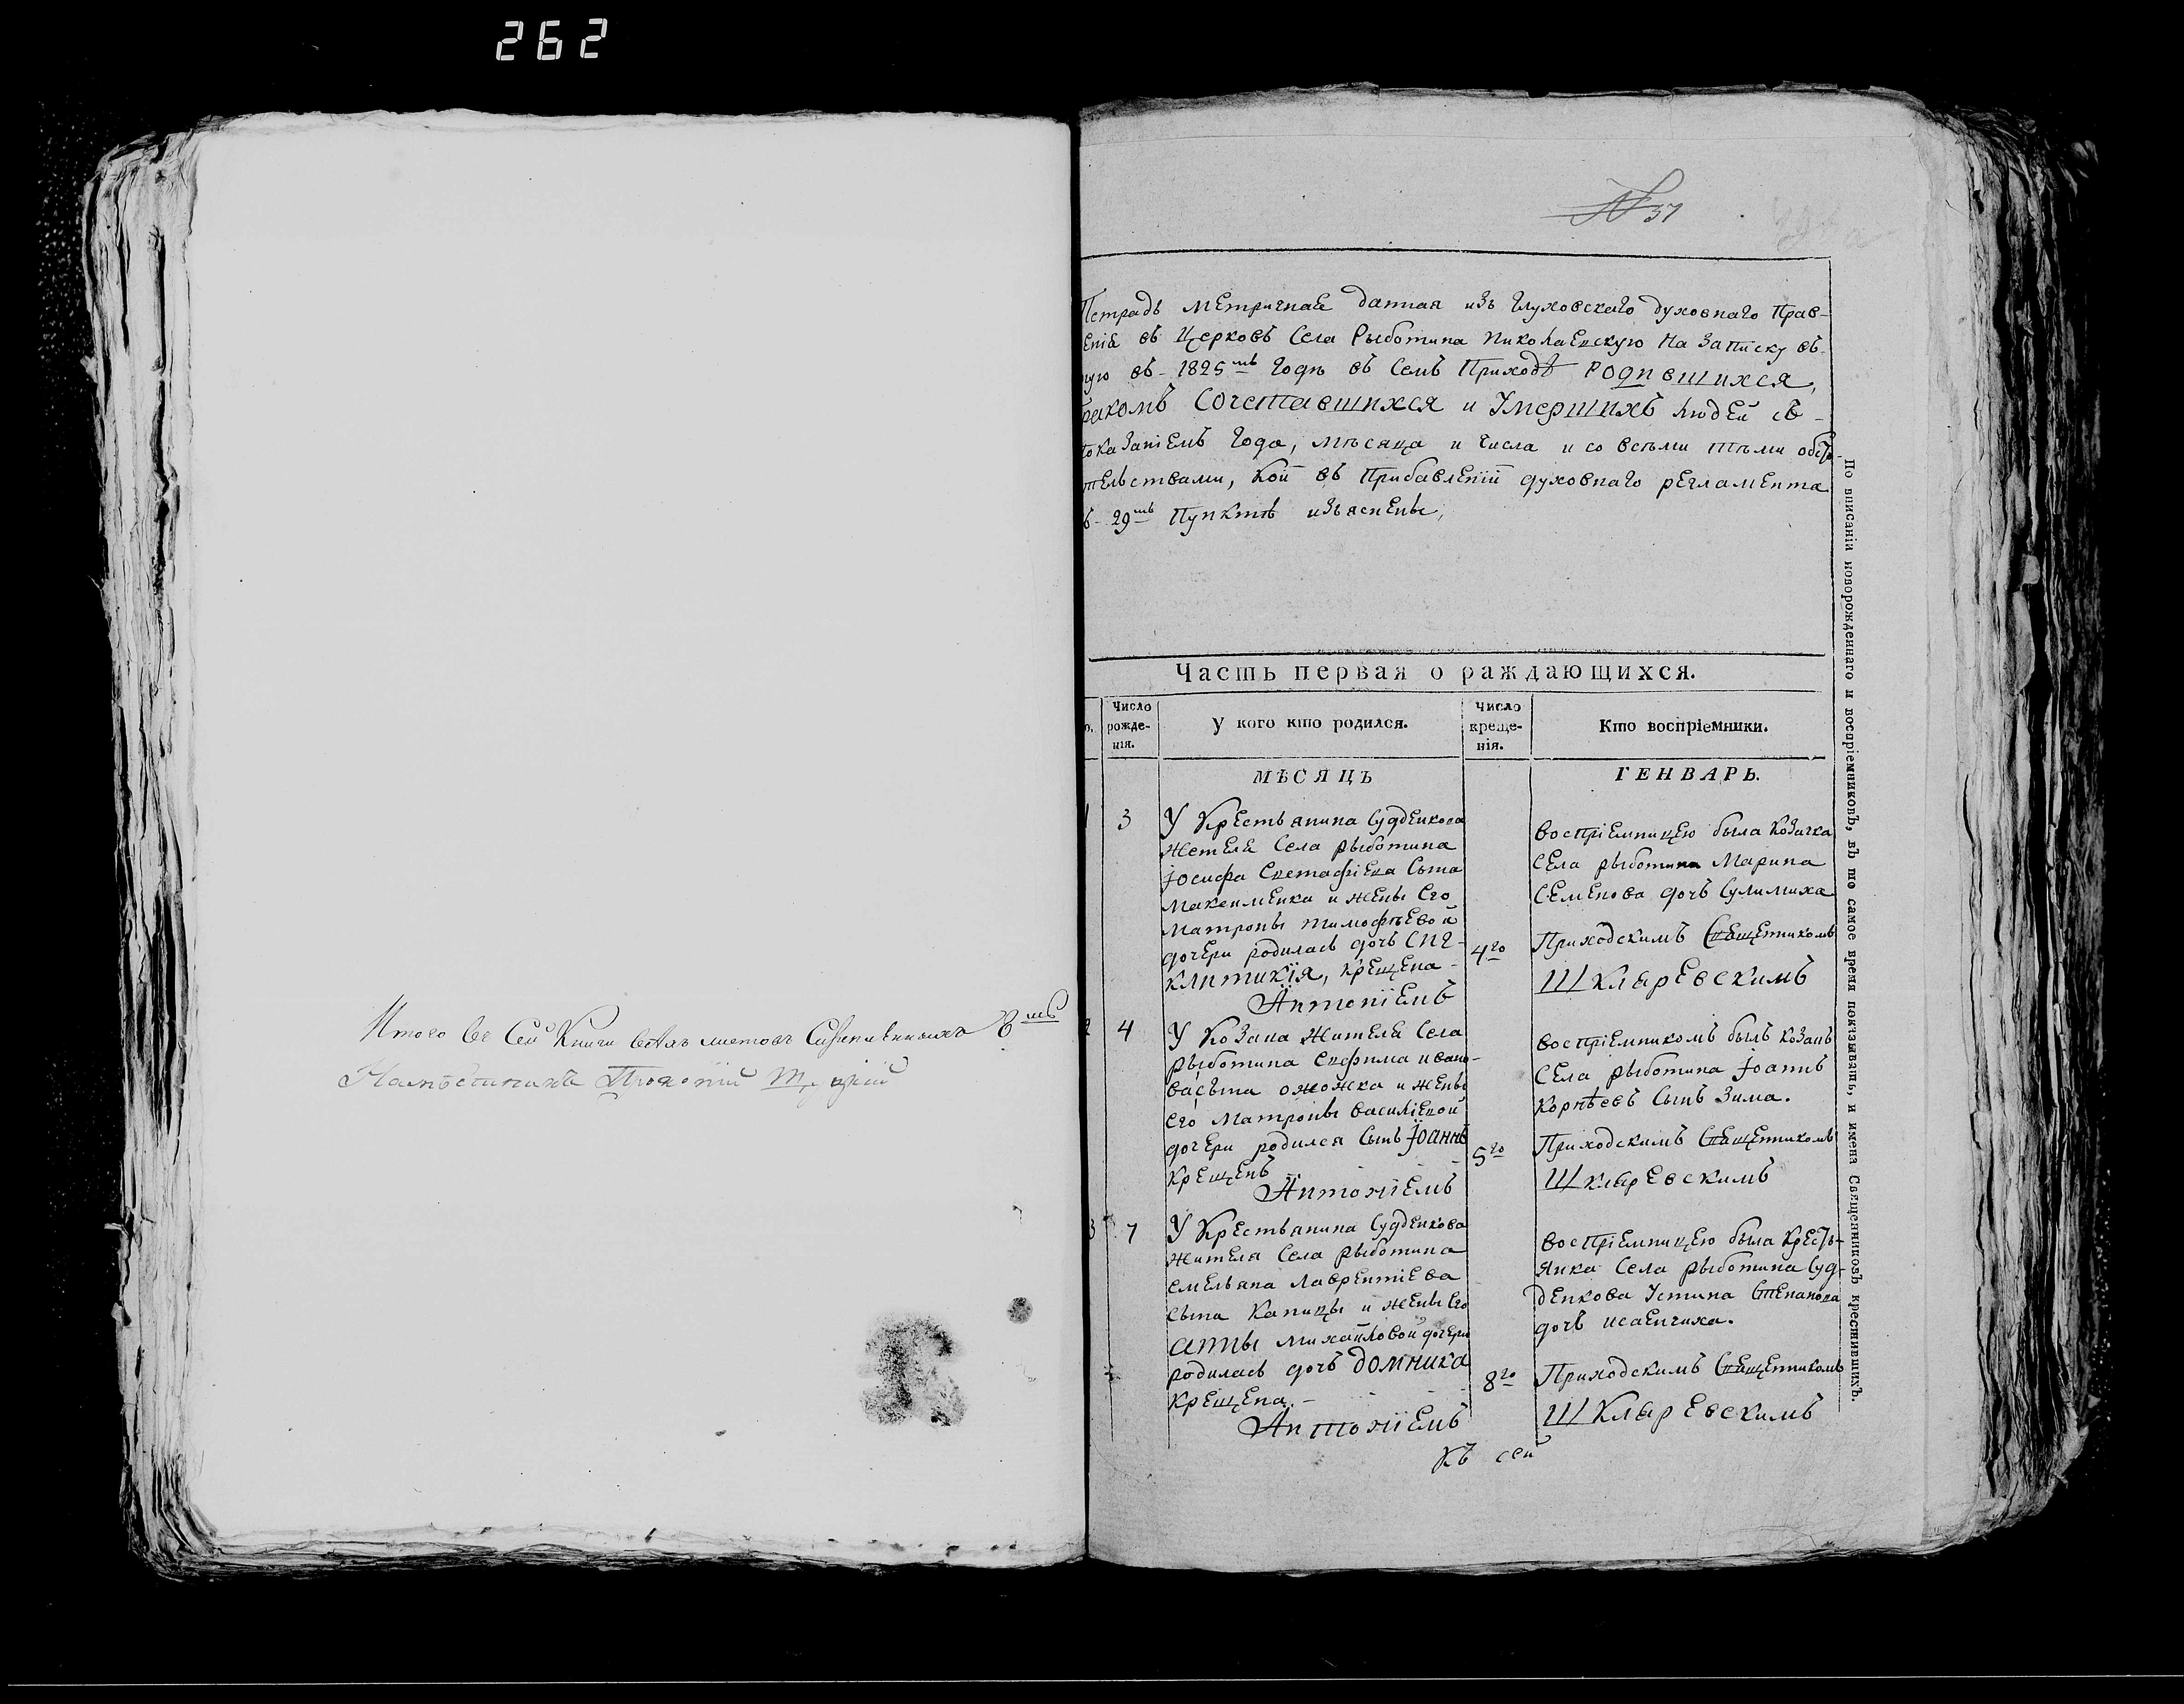 262
Итого въ Сей Книги всѣхъ листовъ Скрепленныхъ 8мъ
Намѣстникъ Прокопій
№ 37
Тетрадь метричная данная изъ Глуховскаго духовнаго Прав-
енія въ Церковь Села Рыботина Николаевскую на записку въ
ную въ 1825мъ Годѣ въ Семъ Приходѣ Родившихся,
ракомъ Сочетавшихся и Умершихъ людей съ-
показаніемъ Года, мѣсяца и числа и со всѣми тѣми обсто-
тельствами, кои въ Прибавленіи духовнаго регламента
въ 29мъ Пунктѣ изъяснены,
Часть первая о раждающихся.
Число рожде-нія.
у кого кто родился.
Число креще-нія.
Кто воспріемники.
МѢСЯЦЪ
ГЕНВАРЬ.
1 3
У Крестьянина Судденкова
жителя Села Рыботина
Іосифа Евстафіева Сына
Максименка и жены Его
Матроны Тимофѣевой
дочери родилась дочь Сиг-
клитикія, крещена-
Антоніемъ
4го
воспріемницею была Козачка
Села Рыботина Марина
Семенова дочь Сулимиха
Приходскимъ Священникомъ
Шкляревскимъ
2 4
У Козака Жителя Села
Рыботина Евфима Ивано-
ва сына ожожка и жены
его Матроны Василіевой
дочери родился Сынъ Іоаннъ
Крещенъ
Антоніемъ
5го
воспріемникомъ былъ Козакъ
Села Рыботина Іоаннъ
Корнѣевъ Сынъ Зима.
Приходскимъ Священникомъ
Шкляревскимъ
3 7
У Крестьянина Судденкова
жителя Села Рыботина
Емельяна Лаврентіева
Сына Капицы и жены Его
Анны Михайловой дочери
родилась дочь Домника
Крещена.-
Антоніемъ
8го
воспріемницею была кресть-
янка Села Рыботина Суд-
денкова Устина Степанова
дочь Исаенчиха.
Приходскимъ Священникомъ
Шкляревскимъ
Къ сей
По вписаніи новорожденнаго и воспріемниковъ, въ то самое время показывать, и имена Священниковъ крестившихъ.